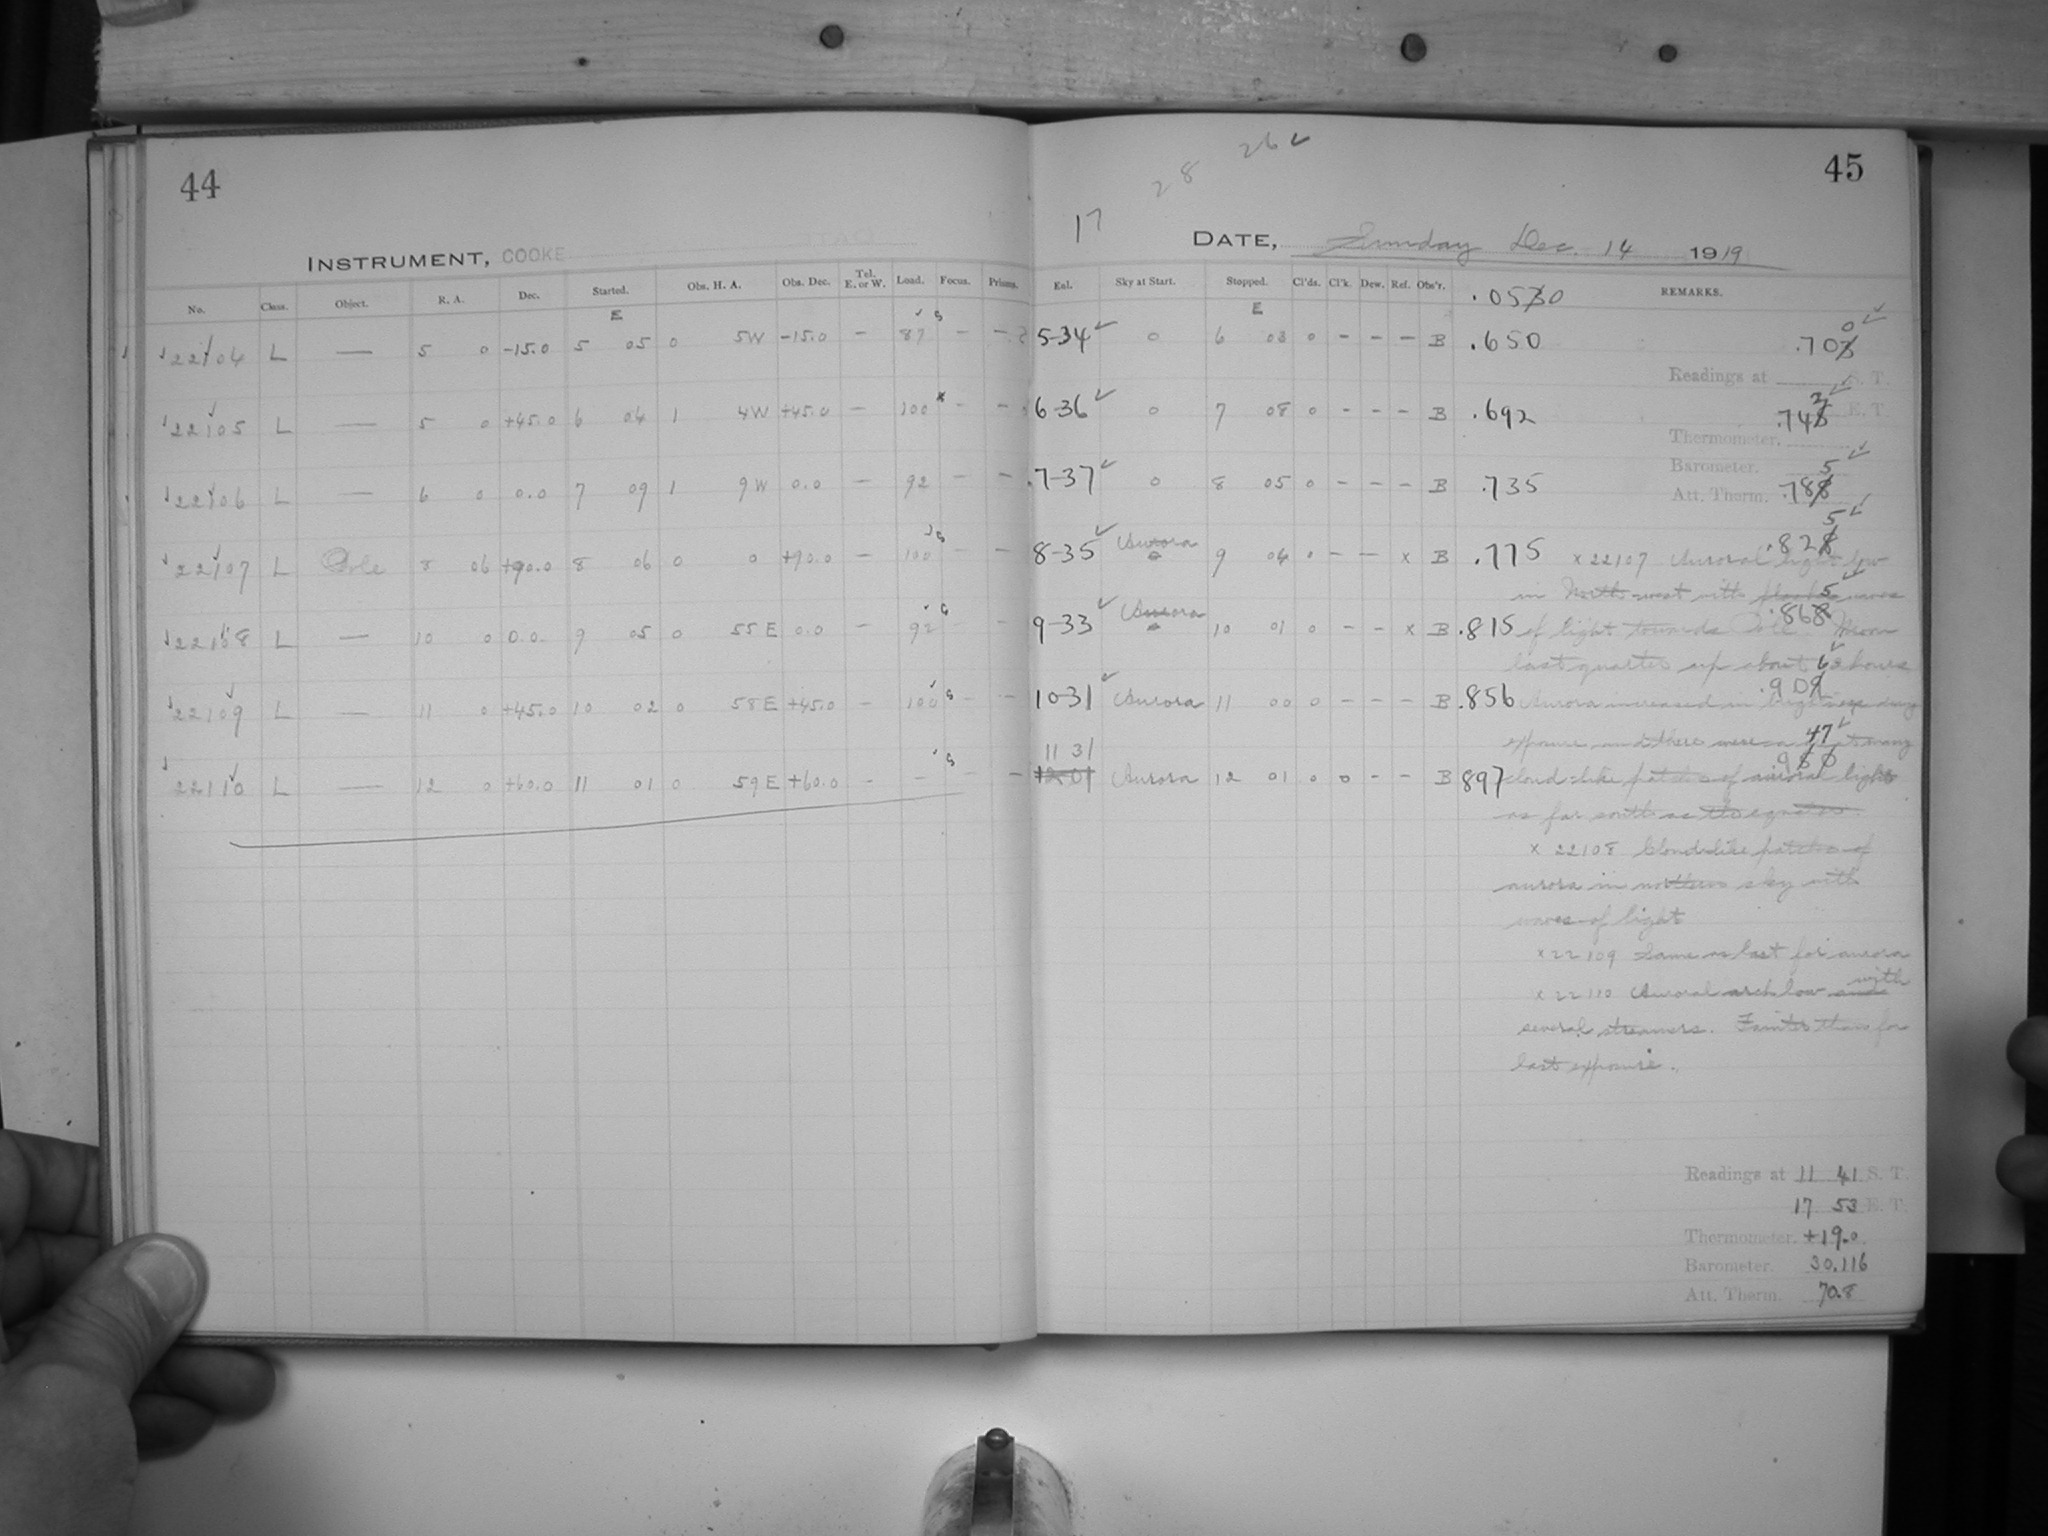 44
INSTRUMENT, COOKE
No. Class. Object. R. A. Dec. Started. Obs. H. A. Obs. Dec. Tel. E. or W. Load. Focus. Prisms.
E
22104 L — 5 0 -15.0 5 05 0 5W -15.0 — 87 — —
22105 L — 5 0 +45.0 6 04 1 4W +45.0 — 100 — —
22106 L — 6 0 0.0 7 09 1 9W 0.0 — 92 — —
22107 L Pole 8 06 +90.0 8 06 0 0 +90.0 — 100 — —
22108 L — 10 0 0.0 9 05 0 55E 0.0 — 92 — —
22109 L — 11 0 +45.0 10 02 0 58E +45.0 — 100 — —
22110 L — 12 0 +60.0 11 01 0 59E +60.0 — — — —
45
28 26 ✓
17
DATE, Sunday Dec. 14 1919
Exl. Sky at Start. Stopped. Cl'ds. Cl'k. Dew. Ref. Obs'r. REMARKS.
E
5-34 ✓ 0 6 03 0 — — — B .650
6-36 ✓ 0 7 08 0 — — — B .692
7-37 ✓ 0 8 05 0 — — — B .735
8-35 ✓ Aurora 9 04 0 — — x B .775 x 22107 Auroral light low
in North west with waves
9-33 ✓ Aurora 10 01 0 — — x B .815 of light towards Pole. Moon
last quarter up about hours
10-31 ✓ Aurora 11 00 0 — — — B .856 Aurora increased in brightness during
exposure and there were a great many
11 31
12 01 Aurora 12 01 0 0 — — B 897 cloud-like patches of auroral light
as far south as the equator.
x 22108 Cloudlike patches of
aurora in northern sky with
waves of light
x 22109 Same as last for aurora
x 22110 Auroral arch low with
several streamers. Fainter than for
last exposure.
Readings at S. T.
E. T.
Thermometer.
Barometer.
Att. Therm.
Readings at 11 41 S. T.
17 53 E. T.
Thermometer. +19.0
Barometer. 30.116
Att. Therm. 70.8